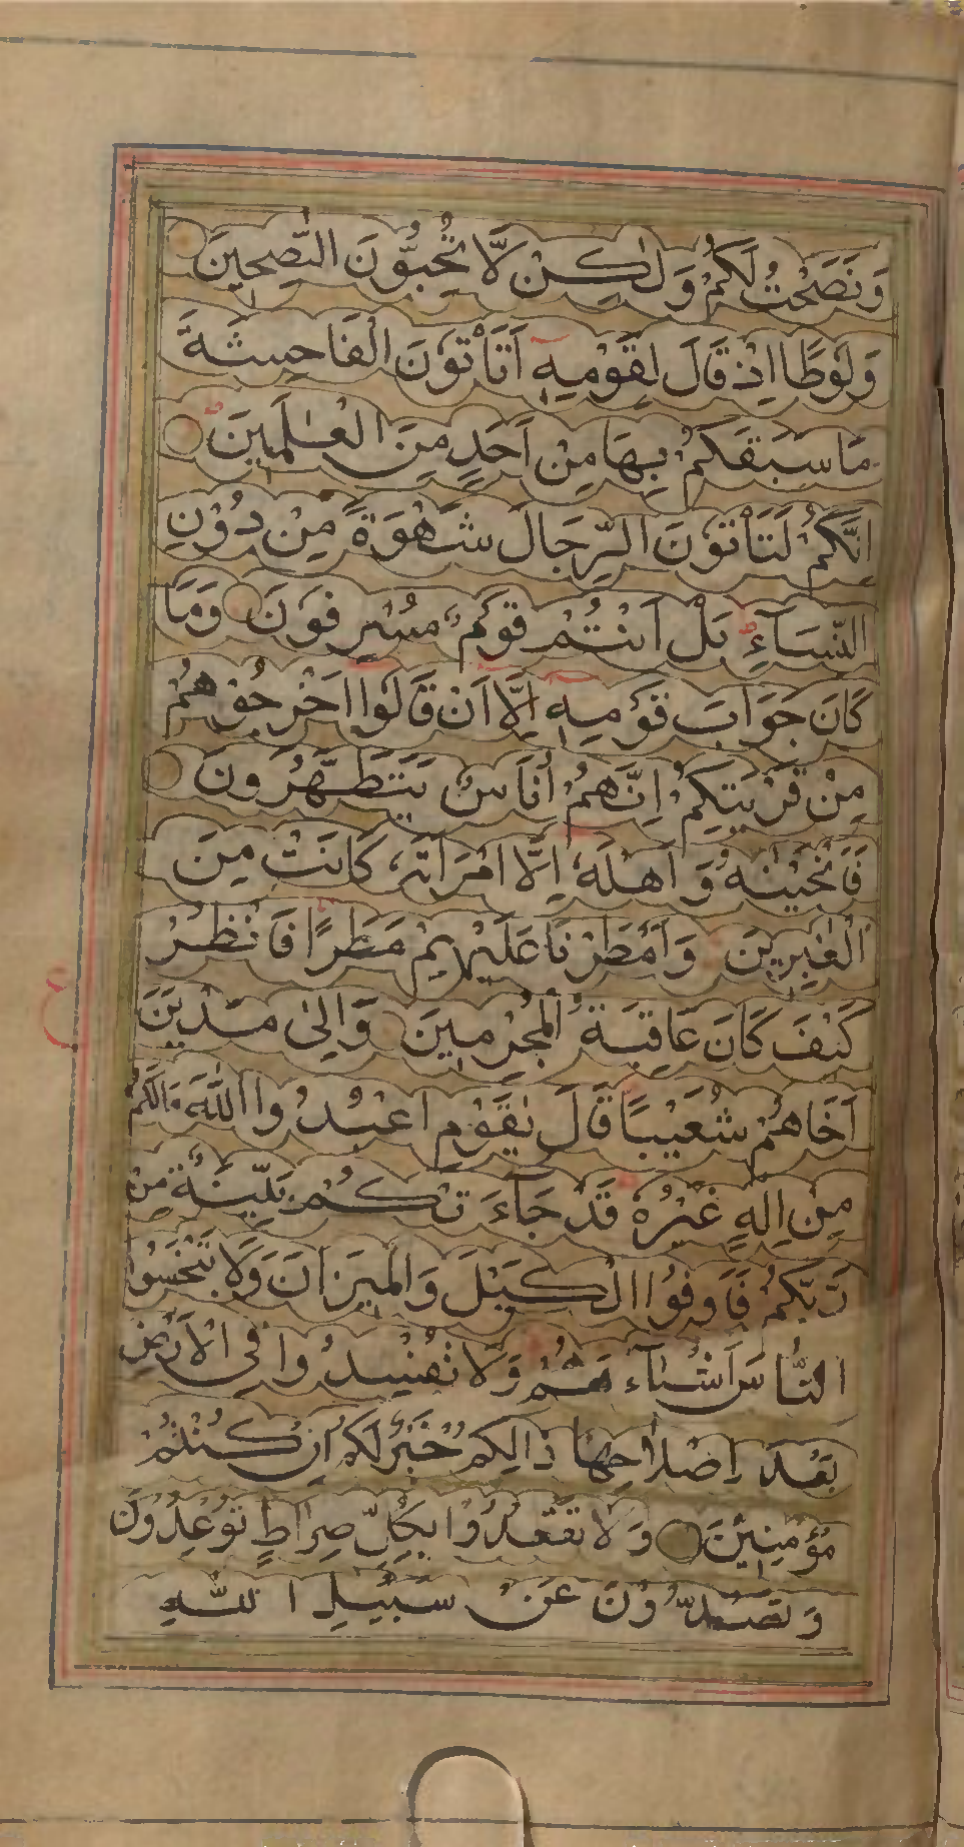 وَنَصَحْتُ لَكُمْ وَلٰكِنْ لَّا تُحِبُّوْنَ النّٰصِحِيْنَ
وَلُوْطًا اِذْ قَالَ لِقَوْمِهٖ اَتَاْتُوْنَ الْفَاحِشَةَ
مَا سَبَقَكُمْ بِهَا مِنْ اَحَدٍ مِنَ الْعٰلَمِيْنَ
اِنَّكُمْ لَتَاْتُوْنَ الرِّجَالَ شَهْوَةً مِنْ دُوْنِ
النِّسَآءِ بَلْ اَنْتُمْ قَوْمٌ مُسْرِفُوْنَ وَمَا
كَانَ جَوَابَ قَوْمِهٖ اِلَّا اَنْ قَالُوا اَخْرِجُوْهُمْ
مِنْ قَرْيَتِكُمْ اِنَّهُمْ اُنَاسٌ يَتَطَهَّرُوْنَ
فَاَنْجَيْنٰهُ وَاَهْلَهٗ اِلَّا امْرَاَتَهٗ كَانَتْ مِنَ
الْغٰبِرِيْنَ وَاَمْطَرْنَا عَلَيْهِمْ مَطَرًا فَانْظُرْ
كَيْفَ كَانَ عَاقِبَةُ الْمُجْرِمِيْنَ وَاِلٰى مَدْيَنَ
اَخَاهُمْ شُعَيْبًا قَالَ يٰقَوْمِ اعْبُدُوا اللّٰهَ مَالَكُمْ
مِنْ اِلٰهٍ غَيْرُهٗ قَدْ جَآءَتْكُمْ بَيِّنَةٌ مِنْ
رَبِّكُمْ فَاَوْفُوا الْكَيْلَ وَالْمِيْزَانَ وَلَا تَبْخَسُوا
النَّاسَ اَشْيَآءَهُمْ وَلَا تُفْسِدُوا فِى الْاَرْضِ
بَعْدَ اِصْلَاحِهَا ذَالِكُمْ خَيْرٌ لَكُمْ اِنْ كُنْتُمْ
مُؤْمِنِيْنَ وَلَا تَقْعُدُوْا بِكُلِّ صِرَاطٍ تُوْعِدُوْنَ
وَتَصُدُّوْنَ عَنْ سَبِيْلِ اللّٰهِ